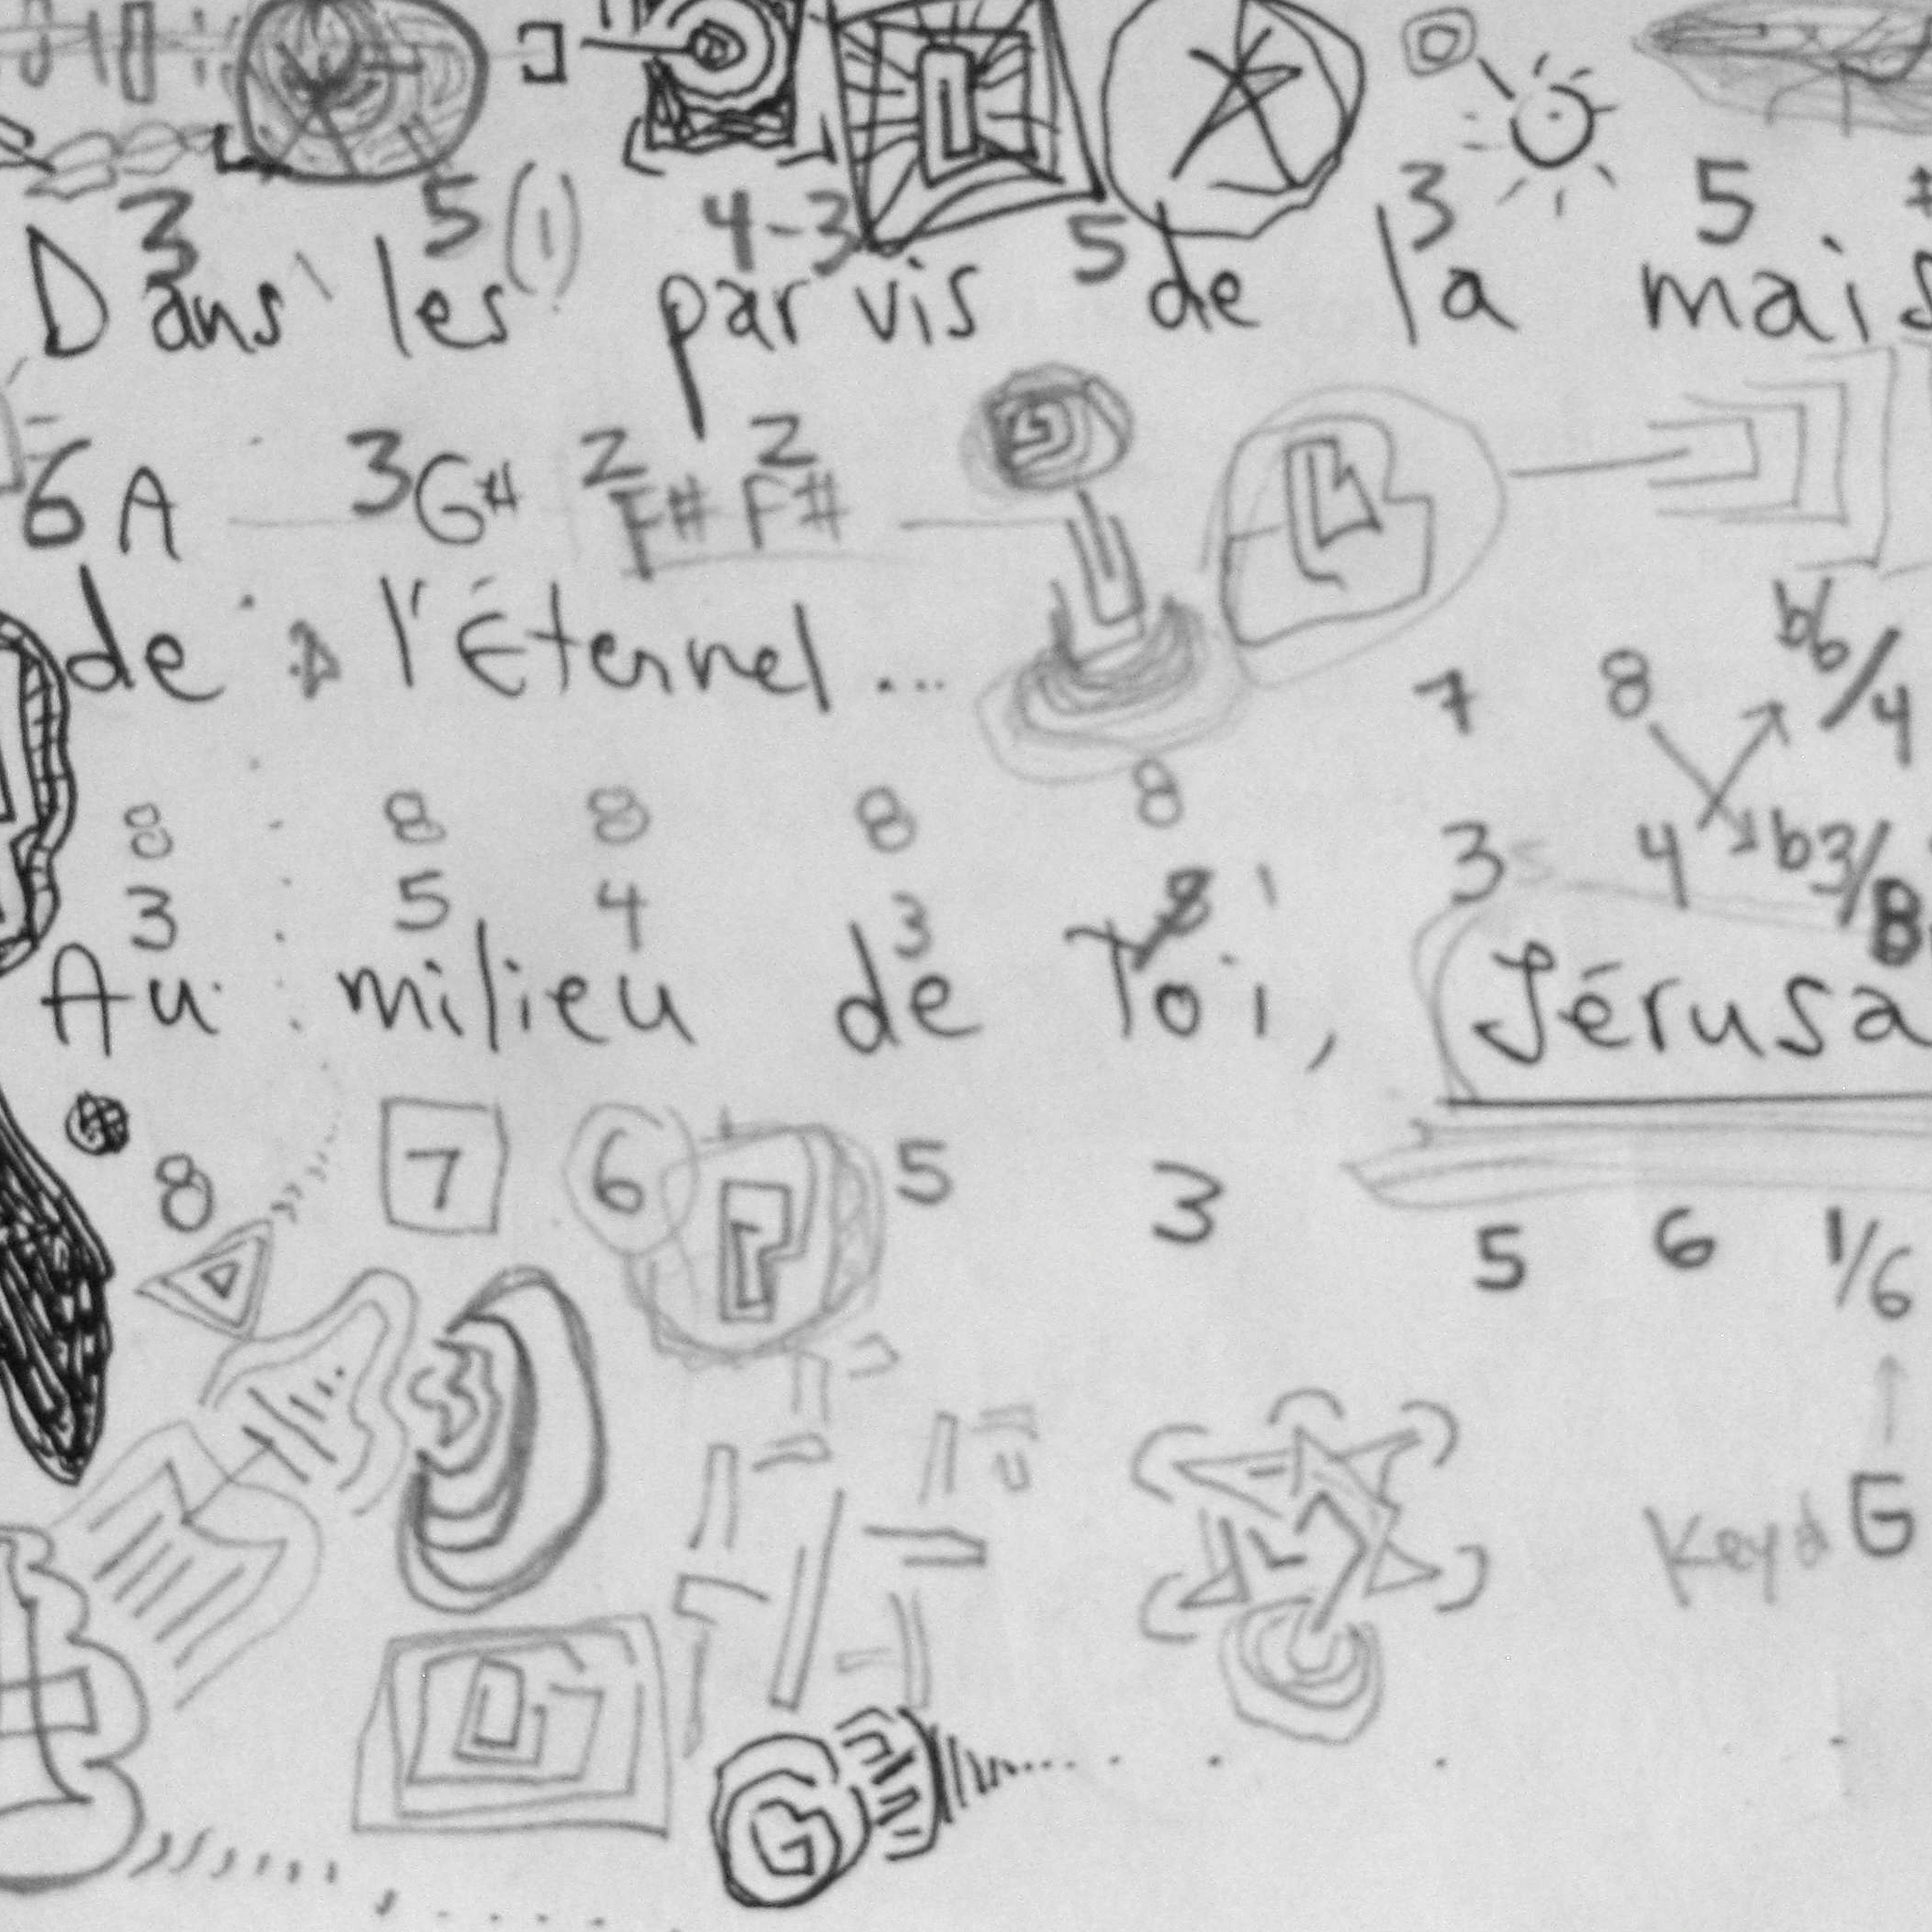 3 5 (1) 4-3 5 3 5
Dans les parvis de la mais
6 A 3 G# 2 F# 2 F#
de l'Éternel...
7 8 b6/4
8 8 8 8 8
3 4 b3/8
3 5 4 3 8
Au milieu de Toi, Jérusa
8 7 6 5 3
5 6 1/6
Key of G
G